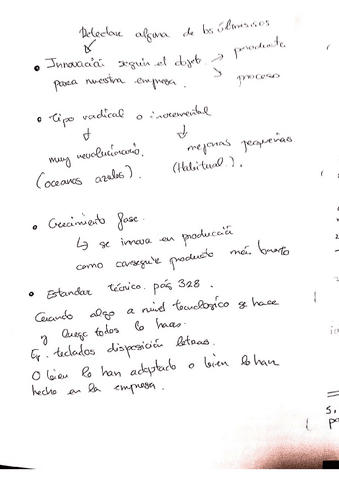 Detectar alguna de los últimos
• Innovación según el objet. → producto
para nuestra empresa. → proceso
• tipo radical o incremental
muy revolucionario. mejoras pequeñas
(oceanos azules). (Habitual).
• Crecimiento fase.
↳ se innova en producción
como conseguir producto más barato
• Estandar técnico. pág 328.
Cuando algo a nivel tecnologico se hace
y luego todos lo hacen.
Eg. teclados disposición letras.
O bien lo han adaptado o bien lo han
hecho en la empresa.